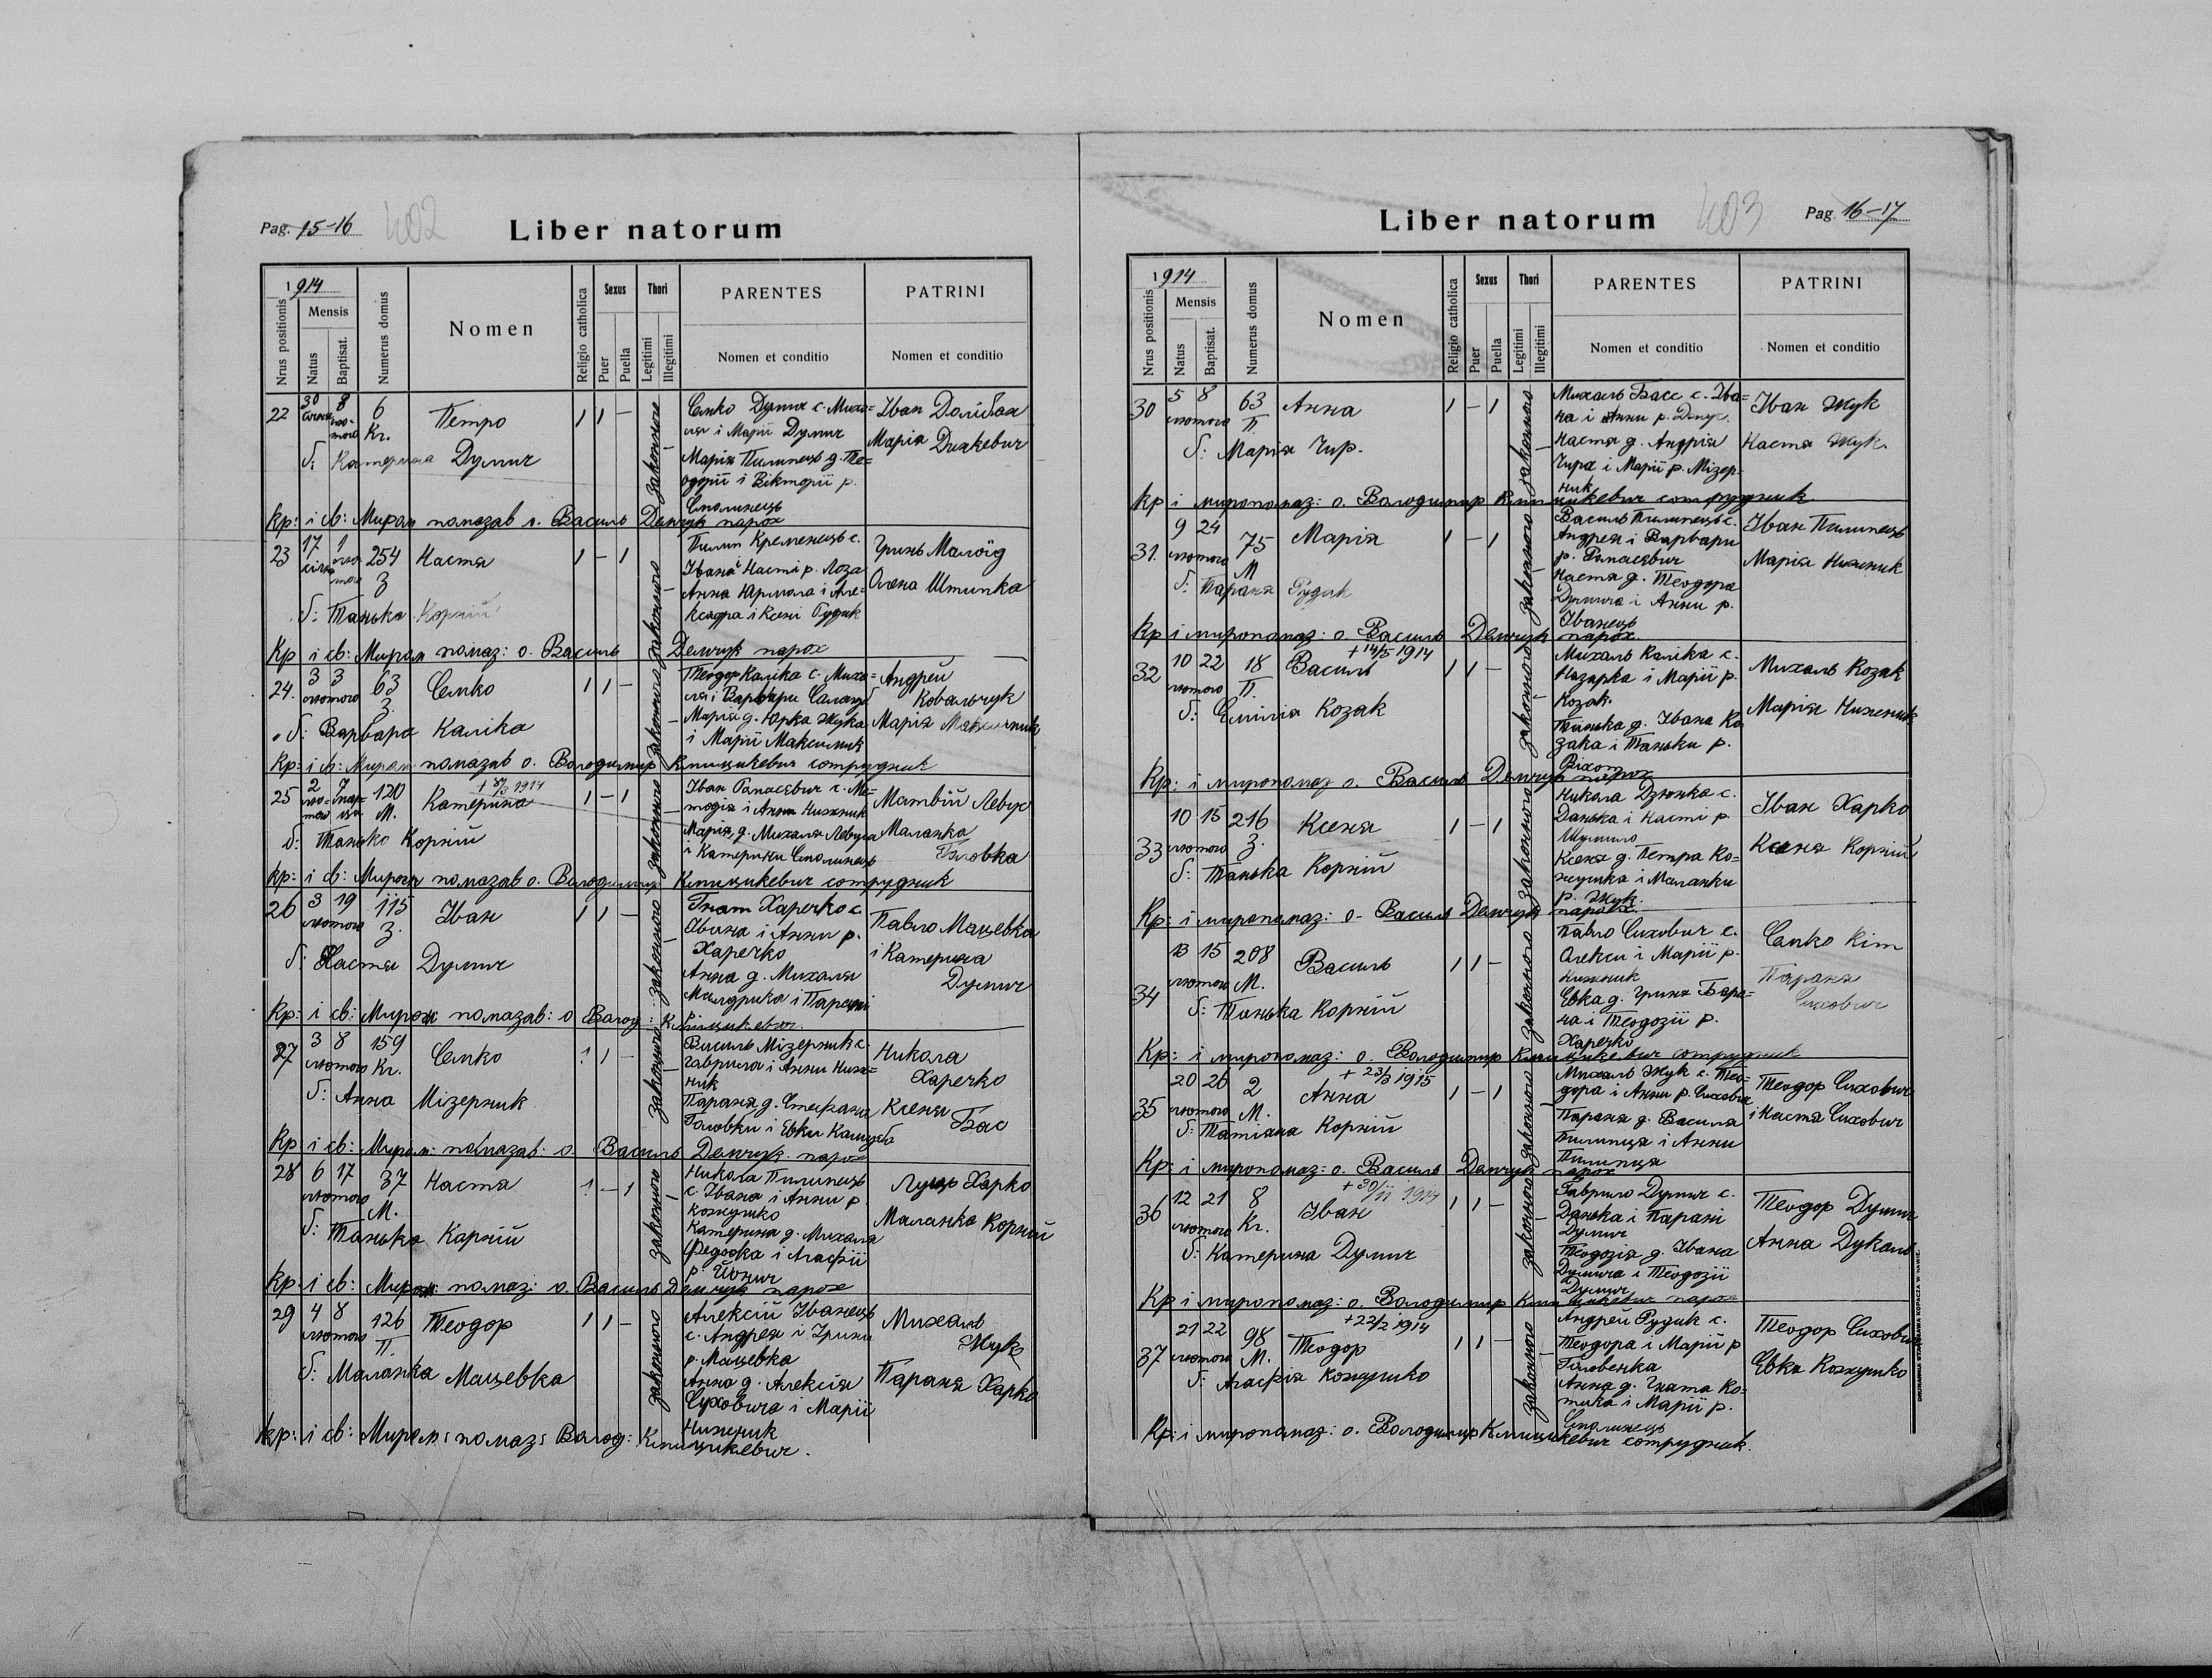 Pag. 15-16
402
Liber natorum
1914
Nrus positionis
Mensis
Natus
Baptisat.
Numerus domus
Nomen
Religio catholica
Sexus
Puer
Puella
Thori
Legitimi
Illegitimi
PARENTES
Nomen et conditio
PATRINI
Nomen et conditio
22 30 8 6 Kr. Петро 1 1 –
б: Катерина Думич
законного
Семко Думич с. Миха=
ля і Марії Думич
Марія Пилипець д. Те=
одорії і Вікторії р.
Смолинець
Іван
Марія
кр: і св: Миром помазав о. Василь Демчук парох
23 17 1 254 З Настя 1 – 1
б: Танька Корній
законного
Пилип Кременець с.
Івана і Насті р. Лоза
Анна Ярмола і Але=
ксадра і Ксені Рудик
Гринь Малоїд
Олена Штипка
Кр і св: Миром помаз: о. Василь Демчук парох
24. 3 3 лютого 63 З. Семко 1 1 –
б: Варвара Каліка
законного
Теодор Каліка с. Миха=
ля і Варвари
Марія д. Юрка Жука
і Марії Максимик
Андрей
Ковальчук
Марія
Кр: і св: Миром помазав о. Володимир Клицикевич сотрудник
25 2 7 120 М. Катерина 1 – 1
1914
б: Танько Корній
законного
Іван Панасевич с. Ме=
тодія і Анни Нижник
Марія, д. Михаля Левуса
і Катерини Смолинець
Матвій Левус
Маланка
Головка
кр: і св: Миром помазав о. Володимир Клицикевич сотрудник
26 3 19 лютого 115 З. Іван 1 1 –
б: Настя Думич
законного
Гнат Харечко с.
Івана і Анни р.
Харечко
Анна д. Михаля
і Парані
Павло Мацевка
і Катерина
Думич
Кр: і св: Миром помазав: о Волод: Клицикевич.
27 3 8 лютого 159 Kr. Семко 1 1 –
б: Анна Мізерник
законного
Василь Мізерник с.
Гаврила і Анни Ниж=
ник
Параня д. Стефана
Головки і Евки
Никола
Харечко
Ксеня
Бас
Кр: і св: Миром: помазав: о. Василь Демчук. парох
28 6 17 лютого 37 М. Настя 1 – 1
б: Танька Корній
законного
Никола Пилипець
с. Івана і Анни р.
Кожушко
Катерина д. Михаля
Федорка і Агафії
р. Йонич
Луць Харко
Маланка Корній
Кр: і св: Миром: помаз: о. Василь Демчук парох
29 4 8 лютого 126 П. Теодор 1 1 –
б: Маланка Мацевка
законного
Алексій Іванець
с. Андрея і Ірини
р. Мацевка
Анна д. Алексія
Суховича і Марії
Нижник
Михаль
Жук
Параня Харко
кр: і св: Миром: помаз: Волод: Клицикевич.
Liber natorum
403
Pag. 16-17
1914
Nrus positionis
Mensis
Natus
Baptisat.
Numerus domus
Nomen
Religio catholica
Sexus
Puer
Puella
Thori
Legitimi
Illegitimi
PARENTES
Nomen et conditio
PATRINI
Nomen et conditio
30 5 8 лютого 63 П Анна 1 – 1
б: Марія Чир.
законного
Михаль Басс с. Іва=
на і Анни р.
Настя д. Андрія
Чира і Марії р. Мізер-
ник
Іван Жук
Настя Жук.
кр і миропомаз: о. Володимир Клицикевич сотрудник
31. 9 24 лютого 75 М Марія 1 – 1
б: Параня Рудик
законного
Василь Пилипець с.
Андрея і Варвари
р. Панасевич
Настя д. Теодора
Думича і Анни р.
Іванець
Іван Пилипець
Марія Нижник
Кр і миропомаз: о. Василь Демчук парох.
32 10 22 лютого 18 П. Василь 1 1 –
+ 14/5 1914
б: Емілія Козак
законного
Михаль Каліка с.
Назарка і Марії р.
Козак.
Танька д. Івана Ко
зака і Таньки р.
Михаль Козак
Марія Нижник
Кр: і миропомаз о. Василь Демчук парох
33 10 15 лютого 216 З. Ксеня 1 – 1
б: Танька Корній
законного
Никола Дзюнка с.
Данька і Насті р.
Шумило
Ксеня д. Петра Ко=
жушка і Маланки
р. Жук.
Іван Харко
Ксеня Корній
Кр: і миропомаз: о. Василь Демчук парох.
34 13 15 лютого 208 М. Василь 1 1 –
б: Танька Корній
законного
Павло Сихович с.
Олекси і Марії р.
Нижник
Евка д. Гриня Бара=
на і Теодозії р.
Харечко
Санко Кіт
Параня
Сихович
Кр: і миропомаз: о. Володимир Клицикевич сотрудник
35 20 26 лютого 2 М. Анна 1 – 1
+ 23/3 1915
б: Татіана Корній
законного
Михаль Жук с. Тео-
дора і Анни р. Сихович
Параня д. Василя
Пилипця і Анни
Пилипця
Теодор Сихович
і Настя Сихович
Кр: і миропомаз: о. Василь Демчук парох
36 12 21 лютого 8 Kr. Іван 1 1 –
+ 30/11 1914
б: Катерина Думич
законного
Гаврило Думич с.
Данька і Парані
Думич
Теодозія д. Івана
Думича і Теодозії
Думич
Теодор Думич
Анна Дукань
Кр і миропомаз: о. Володимир Клицикевич парох
37 21 22 лютого 98 М. Теодор 1 1 –
+ 22/2 1914
б: Агафія Кожушко
законного
Андрей Рудик с.
Теодора і Марії р
Головенка
Анна д. Гната Ко-
тика і Марії р.
Смолинець
Теодор Сихович
Евка Кожушко
Кр: і миропомаз: о. Володимир Клицикевич сотрудник.